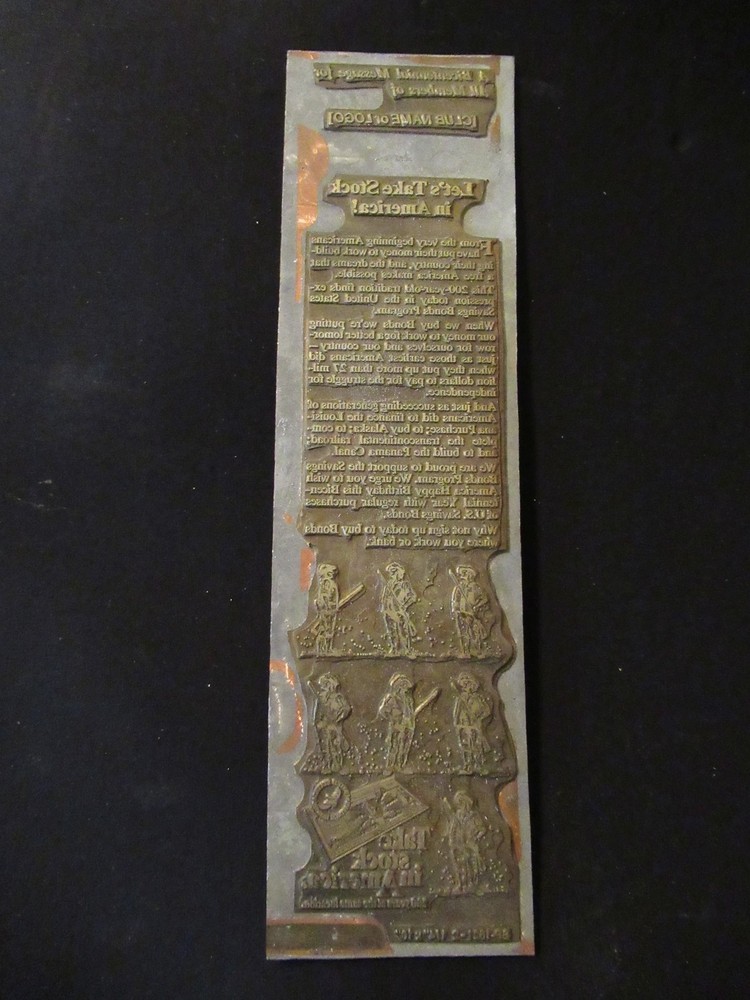 A Bicentennial Message for
All Members of
[CLUB NAME or LOGO]
Let's Take Stock
in America!
From the very beginning Americans
have put their money to work build-
ing their country, and the dreams that
a free America makes possible.
This 200-year-old tradition finds ex-
pression today in the United States
Savings Bonds Program.
When we buy Bonds we're putting
our money to work for a better tomor-
row for ourselves and our country—
just as those earliest Americans did
when they put up more than 27 mil-
lion dollars to pay for the struggle for
independence.
And just as succeeding generations of
Americans did to finance the Louisi-
ana Purchase; to buy Alaska; to com-
plete the transcontinental railroad;
and to build the Panama Canal.
We are proud to support the Savings
Bonds Program. We urge you to wish
America Happy Birthday this Bicen-
tennial Year with regular purchases
of U.S. Savings Bonds.
Why not sign up today to buy Bonds
where you work or bank.
Take
stock
in America.
200 years at the same location.